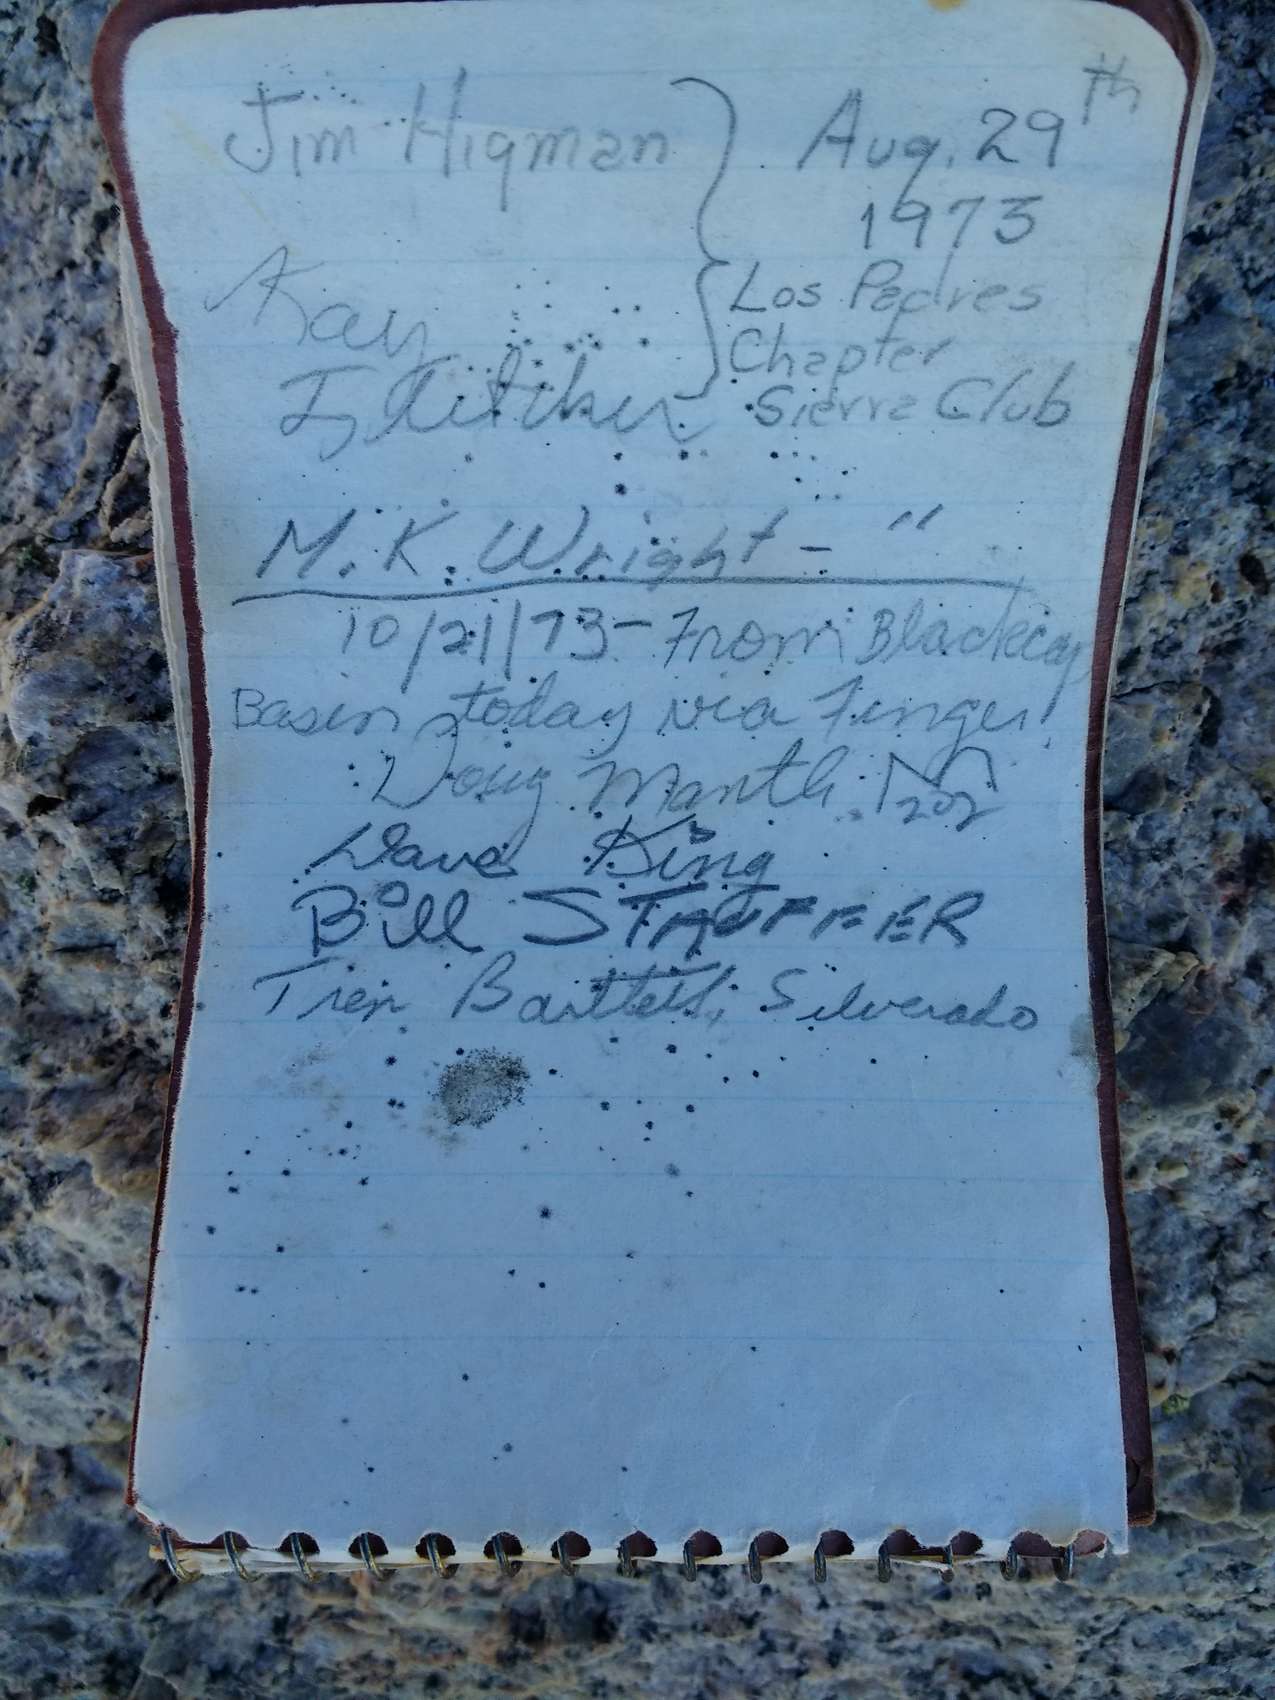 Jim Higman Aug. 29th
1973
Kay Los Padres
Chapter
Fletcher Sierra Club
M. K. Wright - "
10/21/73 - From Blackcap
Basin today via Finger!
Doug Mantle
Dave King
Bill STAUFFER
Tren Bartlett, Silverado